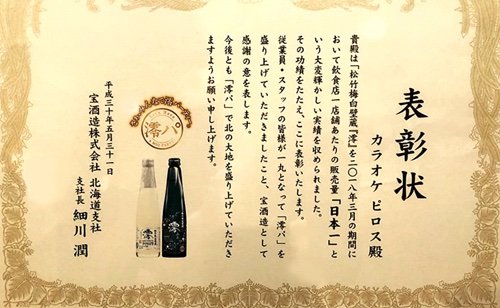 表彰状
カラオケ ピロス殿
貴殿は「松竹梅白壁蔵『澪』を二〇一八年三月の期間に
おいて飲食店一店舗あたりの販売量「日本一」と
いう大変輝かしい実績を収められました。
その功績をたたえ、ここに表彰いたします。
従業員・スタッフの皆様が一丸となって「澪バ」を
盛り上げていただきましたこと、宝酒造として
感謝の意を表します。
今後とも「澪バ」で北の大地を盛り上げていただき
ますようお願い申し上げます。
澪
平成三十年五月三十一日
宝酒造株式会社 北海道支社
支社長 細川 潤